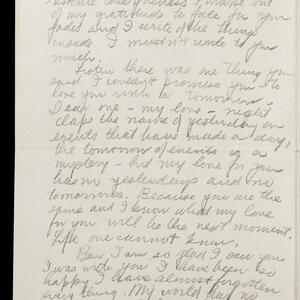 of my gratitude to fate for you
fades and I write of the things
inside I mustn't write to you
much.
Listen there was one thing you
said I couldn't promise you - to
love you until "tomorrow"
Dear one - my love - night
claps the name of yesterday on
events that have made a day,
the tomorrow of events is a
mystery - but my love for you
has no yesterdays and no
tomorrows. Because you are the
same and I know what my love
for you will be the next moment.
Life one cannot know.
Ben, I am so glad I saw you
I was with you I have been so
happy I have almost forgotten
every thing. My world has no